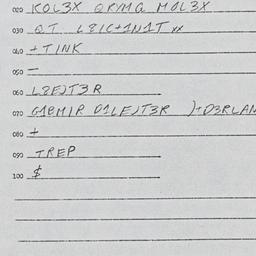 020 KOL3X QRMG MOL3X
030 QT L8IC+1N1T xx
040 +TINK
050 —
060 L8EJT3R
070 G1BMIR D1LEJT3R
080 +
090 TREP
100 $